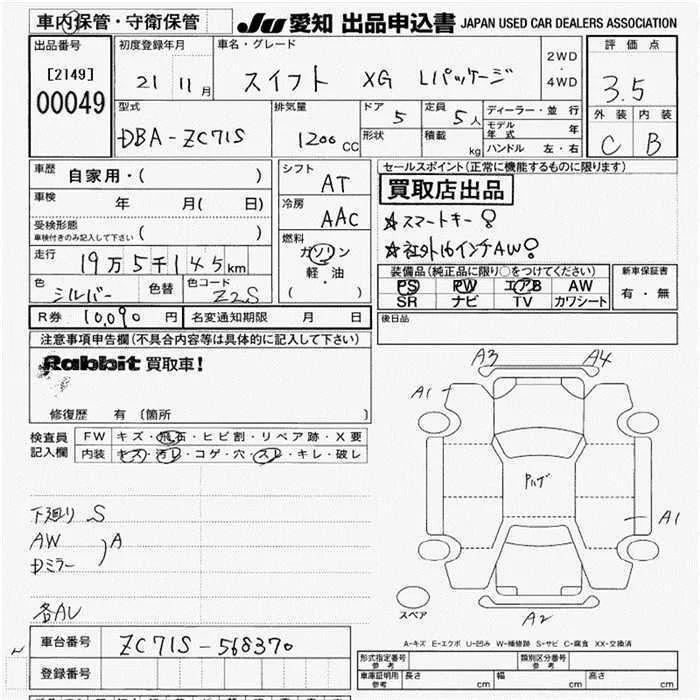 車内保管・守衛保管
JU 愛知 出品申込書 JAPAN USED CAR DEALERS ASSOCIATION
出品番号
[2149]
00049
初度登録年月
21 11月
車名・グレード
スイフト XG Lパッケージ
2WD
・
4WD
評価点
3.5
外装 内装
C B
型式
DBA-ZC71S
排気量
1200 CC
ドア
5
形状
定員
5人
積載
kg
ディーラー・並行
モデル年式 年
ハンドル 左・右
車歴 自家用・( )
車検 年 月( 日)
受検形態
車検付きのみ記入して下さい ( )
走行 19万5千145km
色 シルバー 色替 色コード Z2S
R券 10,090 円 名変通知期限 月 日
シフト
AT
冷房
AAC
燃料
ガソリン
軽・油
( )
セールスポイント(正常に機能するものに限ります)
買取店出品
☆スマートキー
☆社外16インチAW
装備品(純正品に限り○をつけてください)
PS PW エアB AW
SR ナビ TV カワシート
新車保証書
有・無
後日品
注意事項申告欄(不具合内容等は具体的に記入して下さい)
Rabbit 買取車!
修復歴 有〔箇所 〕
検査員
記入欄
FW キズ・飛石・ヒビ割・リペア跡・X要
内装 キズ・汚レ・コゲ・穴・スレ・キレ・破レ
下廻り S
AW
Dミラー
A
各AU
A3 A4
A1
Pハゲ
A1
スペア
A2
A-キズ E-エクボ U-凹み W-補修跡 S-サビ C-腐食 XX-交換済
車台番号 ZC71S-568370
登録番号
形式指定番号
参考
類別区分番号
参考
車庫証明用
参考
長さ cm 幅 cm 高さ cm